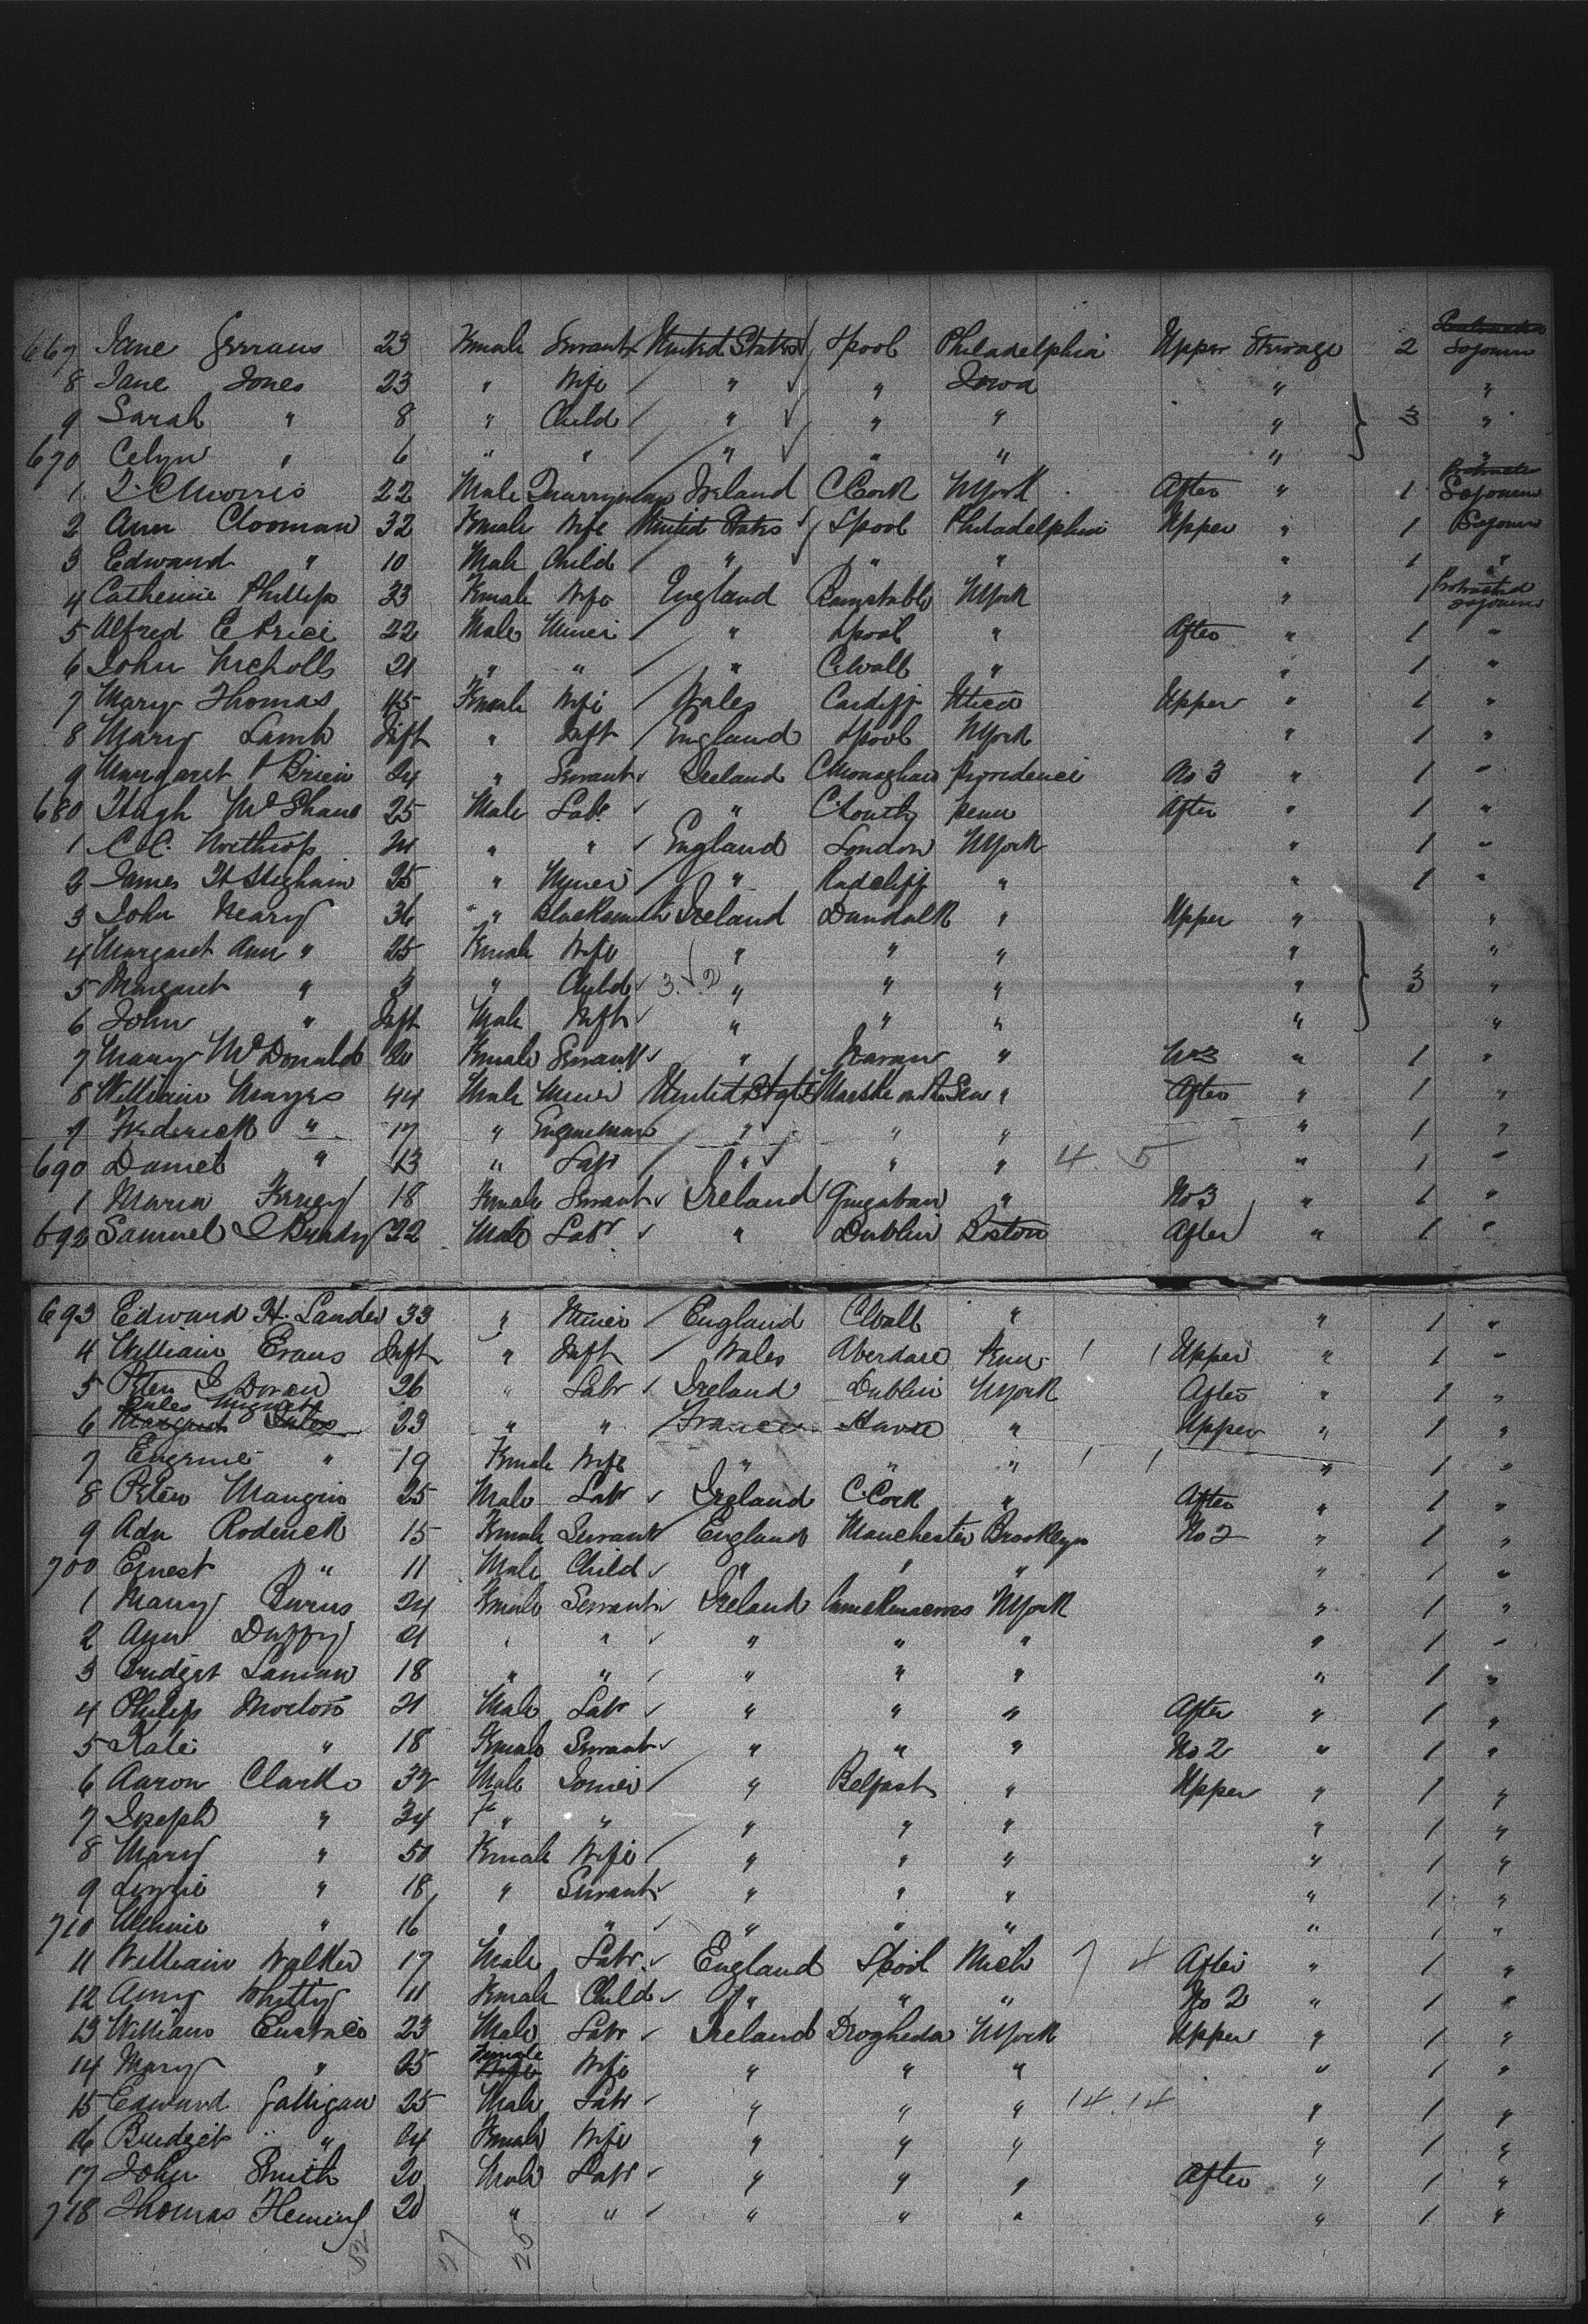 667 Jane 23 Female Servant United States Lpool Philadelphia Upper Steerage 2 Sojourn
8 Jane Jones 23 " Wife " " Iowa " "
9 Sarah " 8 " Child " " " " 3 "
670 Celyn " 6 " " " " " " "
1 Morris 22 Male Quarryman Ireland C Cork NYork After " 1 Sojourn
2 Ann Clooman 32 Female Wife United States Lpool Philadelphia Upper " 1 Sojourn
3 Edward " 10 Male Child " " " " 1 "
4 Catherine Phillips 33 Female Wife England NYork " 1 Protracted sojourn
5 Alfred E Price 22 Male Miner " Lpool " After " 1 "
6 John Nicholls 21 " " " CWall " " 1 "
7 Mary Thomas 45 Female Wife Wales Cardiff Utica Upper " 1 "
8 Mary Lamb Inft " Inft England Lpool NYork " 1 "
9 Margaret O'Brien 24 " Servant Ireland C Monaghan Providence No 3 " 1 "
680 Hugh McShane 25 Male Labr " C Louth Penn After " 1 "
1 C.C. Northrop 21 " " England London NYork " 1 "
2 James H 25 " Miner " Radcliff " " 1 "
3 John Neary 36 " Blacksmith Ireland Dundalk " Upper " "
4 Margaret Ann " 25 Female Wife " " " " "
5 Margaret " 3 " Child 3. 2 " " " " 3 "
6 John " Inft Male Inft " " " " "
7 Mary McDonald 20 Female Servant " Navan " No 3 " 1 "
8 William Mayes 44 Male Miner United States Marske on the Sea " After " 1 "
9 Frederick " 17 " Engineman " " " " 1 "
690 Daniel " 13 " Labr " " " 4. 5 " 1 "
1 Maria 18 Female Servant Ireland " No 3 " 1 "
692 Samuel 22 Male Labr " Dublin Boston After " 1 "
693 Edward H. Lander 33 " Miner England CWall " " 1 "
4 William Evans Inft " Inft Wales Aberdare Penn 1 1 Upper " 1 "
5 Peter J Doran 26 " Labr Ireland Dublin NYork After " 1 "
Jules
6 Jules 23 " " France Havre " Upper " 1 "
7 Eugenie " 19 Female Wife " " " 1 1 " 1 "
8 Peter Mangin 25 Male Labr Ireland C. Cork " After " 1 "
9 Ada Roderick 15 Female Servant England Manchester Brooklyn No 2 " 1 "
700 Ernest " 11 Male Child " " " " 1 "
1 Mary Burns 24 Female Servant Ireland NYork " 1 "
2 Ann Duffy 21 " " " " " " 1 "
3 Bridget 18 " " " " " " 1 "
4 Philip Morton 21 Male Labr " " " After " 1 "
5 Kate " 18 Female Servant " " " No 2 " 1 "
6 Aaron Clarke 32 Male Joiner " Belfast " Upper " 1 "
7 Joseph " 34 " " " " " " 1 "
8 Mary " 50 Female Wife " " " " 1 "
9 Lizzie " 18 " Servant " " " " 1 "
710 Minnie " 16 " " " " " " 1 "
11 William Walker 17 Male Labr. England Lpool Mich 7 4 After " 1 "
12 Amy Whitty 11 Female Child " " " No 2 " 1 "
13 William Eustace 23 Male Labr Ireland Drogheda NYork Upper " 1 "
14 Mary " 25 Female Wife " " " " 1 "
15 Edward Galligan 25 Male Labr " " " 14. 14 " 1 "
16 Bridget " 24 Female Wife " " " " 1 "
17 John Smith 20 Male Labr " " " After " 1 "
718 Thomas Fleming 20 " " " " " " 1 "
52 27 25